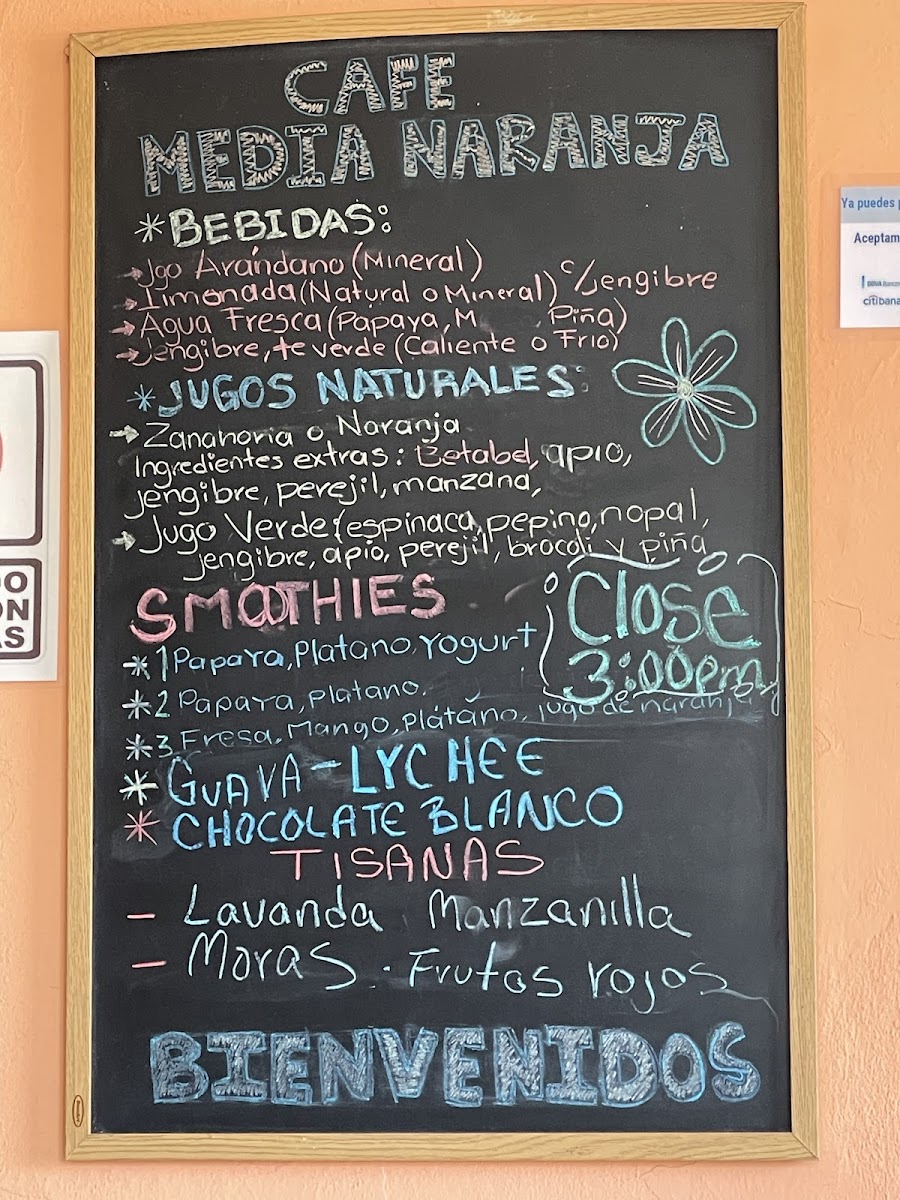 CAFE
MEDIA NARANJA
* BEBIDAS:
→ Jgo Arándano (Mineral)
→ Limonada (Natural o Mineral) c/Jengibre
→ Agua Fresca (Papaya, M Piña)
→ Jengibre, te verde (Caliente o Frio)
* JUGOS NATURALES:
→ Zanahoria o Naranja
Ingredientes extras: Betabel, apio,
jengibre, perejil, manzana,
→ Jugo Verde (espinaca, pepino, nopal,
jengibre, apio, perejil, brocoli y piña
SMOOTHIES
* 1 Papaya, Platano, Yogurt
* 2 Papaya, platano,
* 3 Fresa, Mango, plátano, jugo de naranja
Close
3:00pm
* GUAVA - LYCHEE
* CHOCOLATE BLANCO
TISANAS
- Lavanda Manzanilla
- Moras . Frutos rojos
BIENVENIDOS
Ya puedes
Aceptam
BBVA
citibana
DO
ON
AS